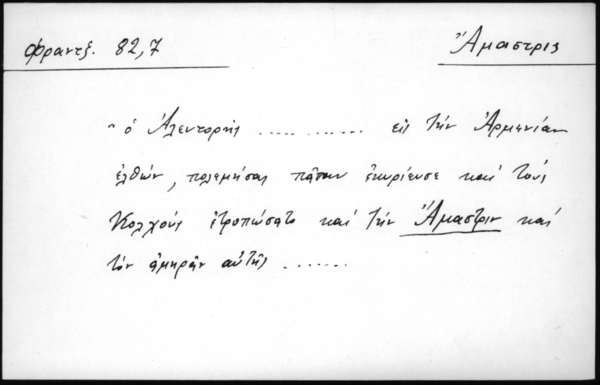 Φραντζ. 82,7
Ἄμαστρις
"ὁ Ἀλεντορὴς ............ εἰς τὴν Ἀρμενίαν
ἐλθών, πολεμήσας πᾶσαν ἐκυρίευσε καὶ τοὺς
Κολχοὺς ἐτροπώσατο καὶ τὴν Ἄμαστριν καὶ
τὸν ἀμηρᾶν αὐτῆς .......